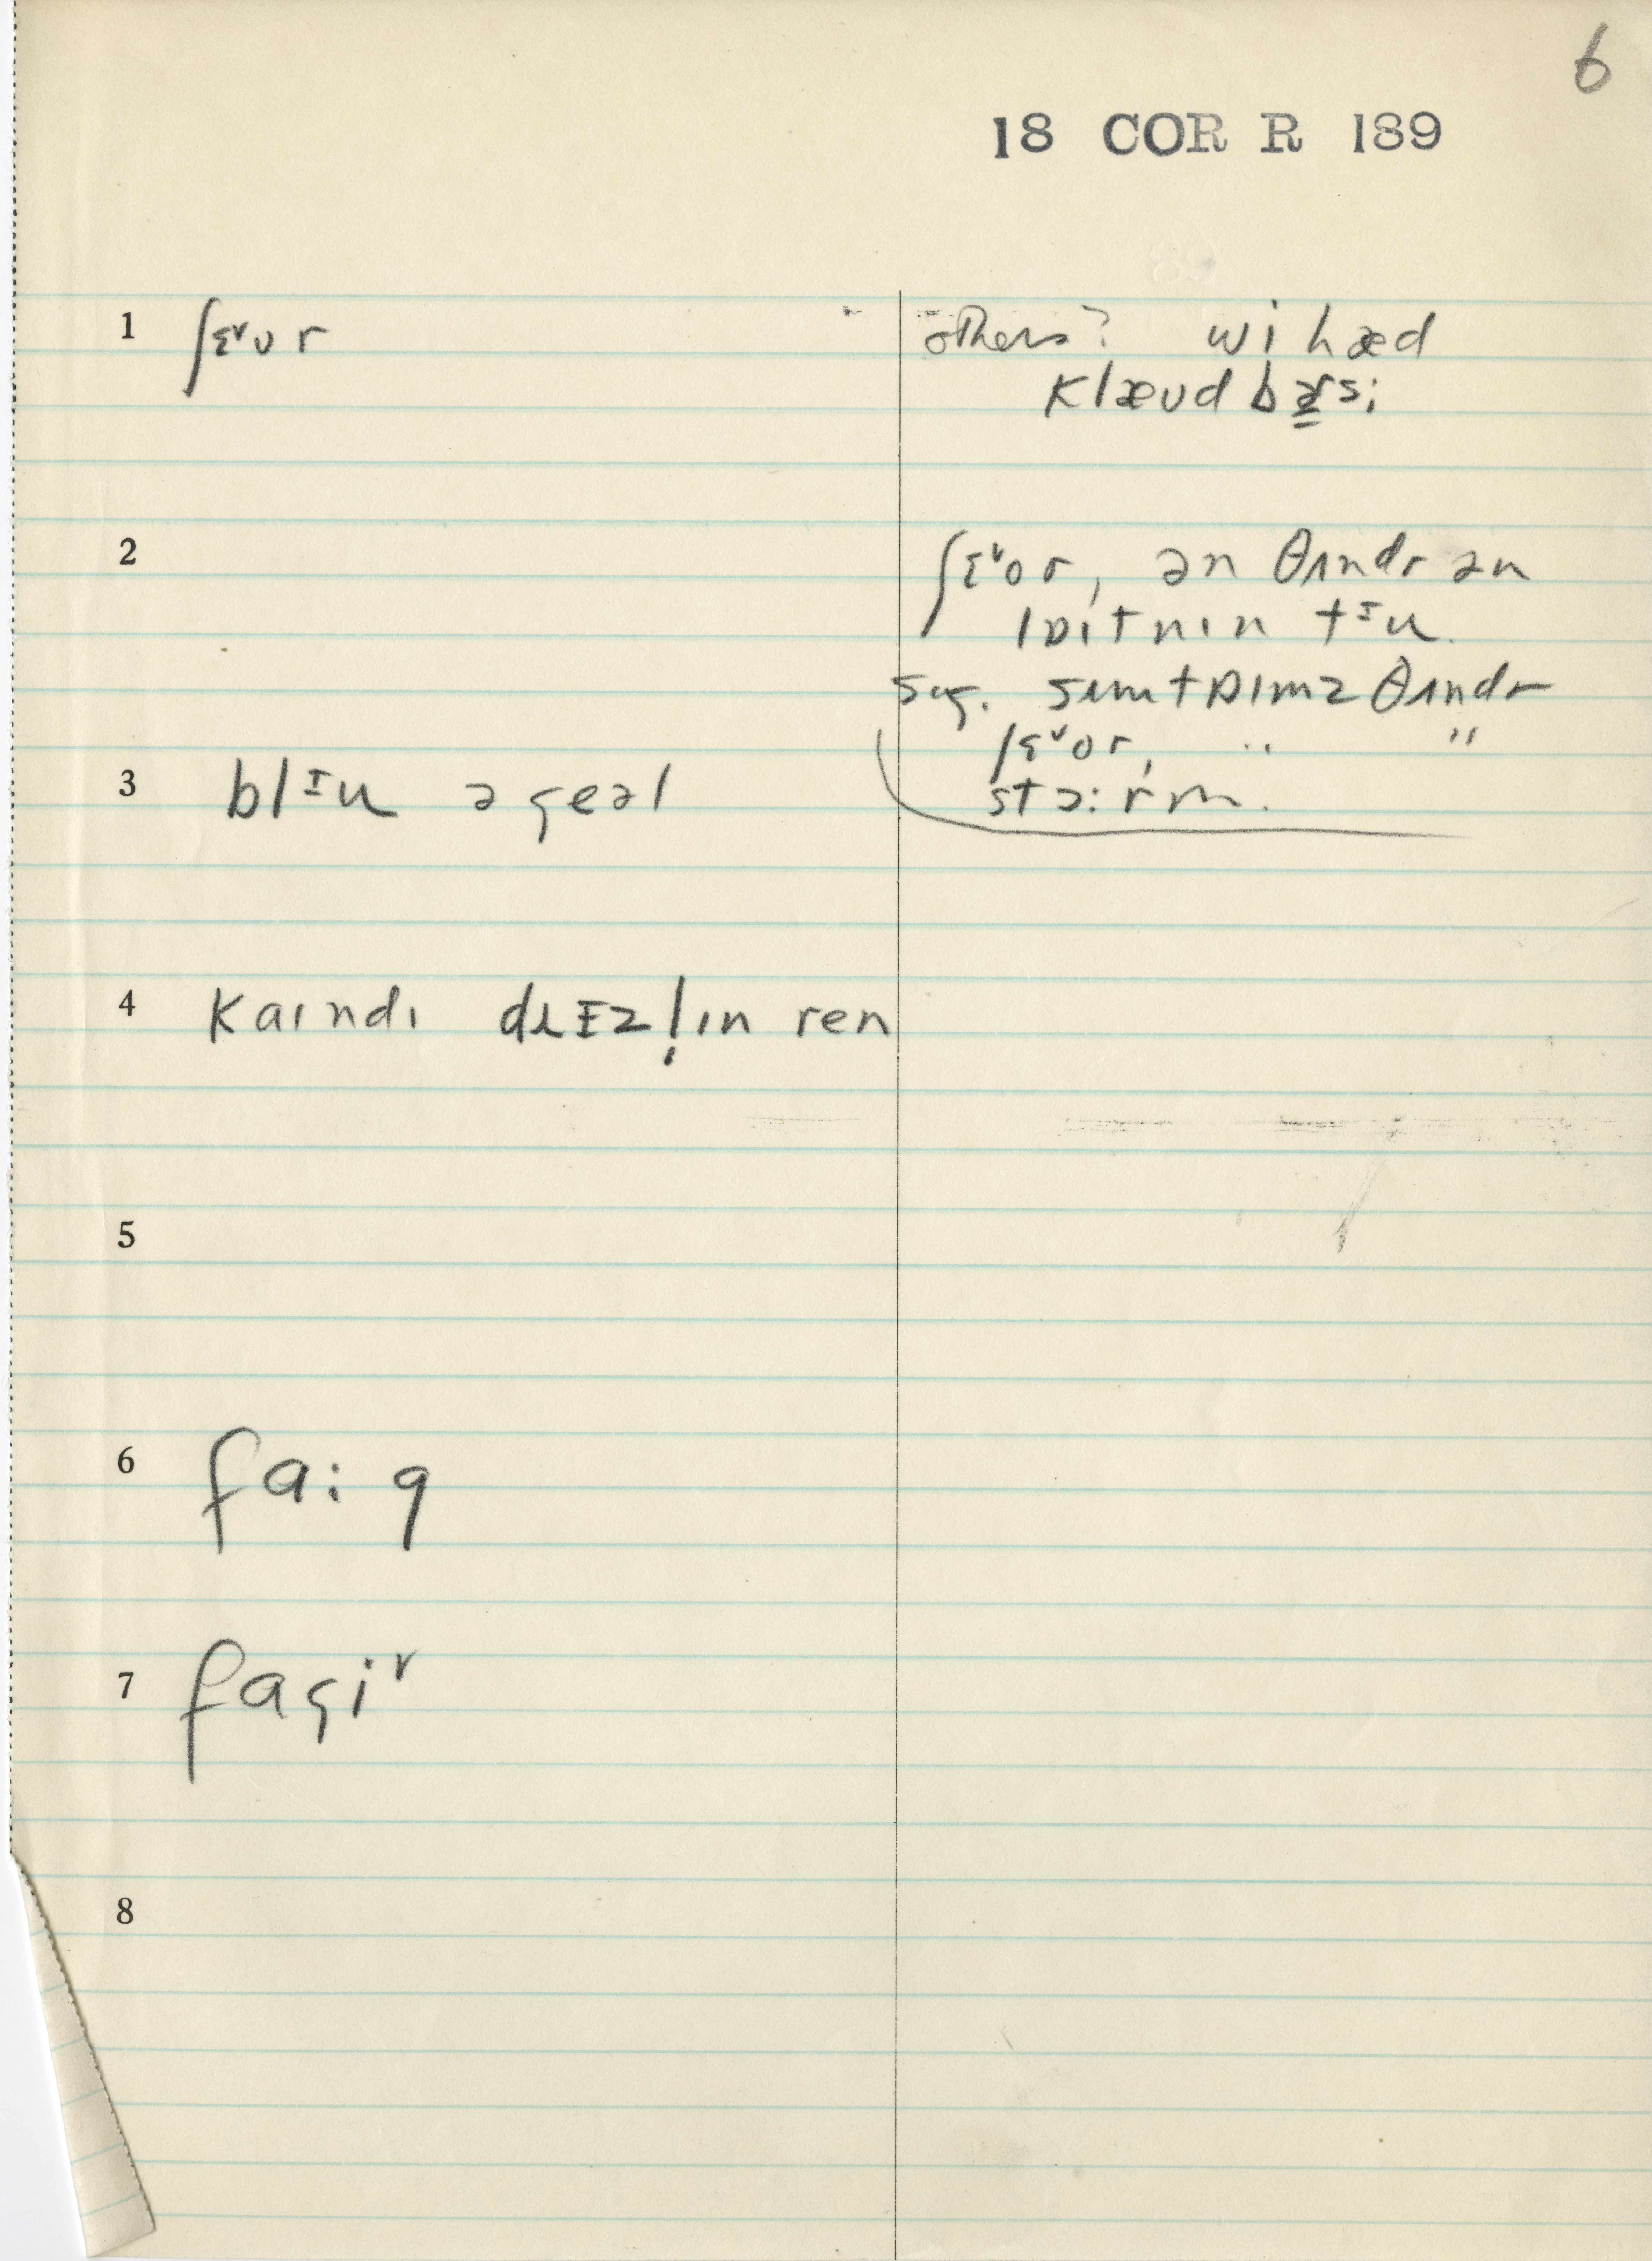 6
18 COR R 189
1 ʃɛᵛʊr
others? wi hæd
klæʊd bɚ̱si
2
ʃɛᵛor, ən θʌndr ən
lɒɪtnɪn tᶦu.
sug. sʌmtɒɪmz θʌndr
ʃɛᵛor, " "
stɔ:rm.
3 blᶦu ə geəl
4 kaɪndɪ drɪzl̩ɪn ren
5
6 fa:g
7 fagiᵛ
8